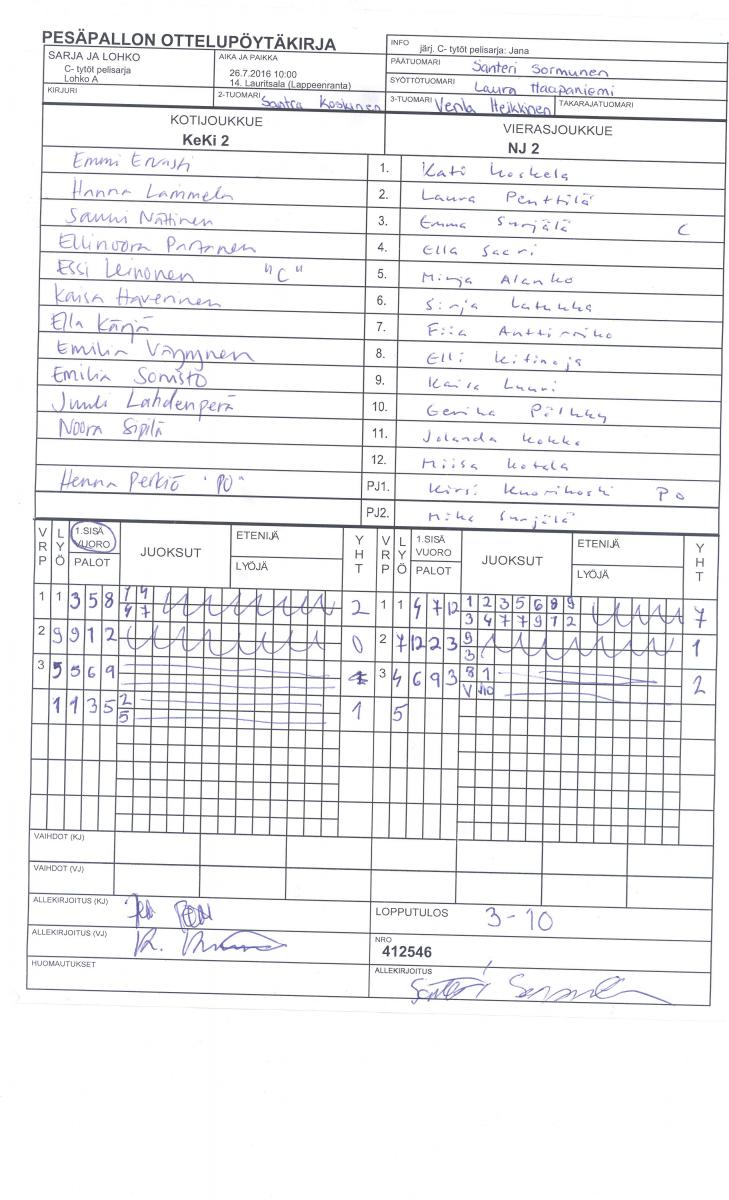 PESÄPALLON OTTELUPÖYTÄKIRJA
SARJA JA LOHKO
C- tytöt pelisarja
Lohko A
AIKA JA PAIKKA
26.7.2016 10:00
14. Lauritsala (Lappeenranta)
INFO järj. C- tytöt pelisarja: Jana
PÄÄTUOMARI Santeri Sormunen
SYÖTTÖTUOMARI Laura Haapaniemi
KIRJURI
2-TUOMARI Santra Koskinen
3-TUOMARI Venla Heikkinen
TAKARAJATUOMARI
KOTIJOUKKUE
KeKi 2
VIERASJOUKKUE
NJ 2
Emmi Ervasti 1. Kati Koskela
Hanna Lammela 2. Laura Penttilä
Sanni Nättinen 3. Emma Surjälä C
Ellinoora Partanen 4. Ella Saari
Essi Leinonen "C" 5. Minja Alanko
Kaisa Haverinen 6. Sirja Latukka
Ella Kärjä 7. Fiia Anttiroiko
Emilia Väyrynen 8. Elli Kitinoja
Emilia Sormisto 9. Kaisa Luuri
Juuli Lahdenperä 10. Gerika Pölkky
Noora Sipilä 11. Jolanda Kokko
12. Miisa Kotala
Henna Perkiö "PO" PJ1. Kirsi Kuorikoski PO
PJ2. Mika Surjälä
VRP LYÖ 1.SISÄ VUORO PALOT JUOKSUT ETENIJÄ LYÖJÄ YHT VRP LYÖ 1.SISÄ VUORO PALOT JUOKSUT ETENIJÄ LYÖJÄ YHT
1 1 3 5 8 1 4 2 1 1 4 7 12 1 2 3 5 6 8 9 7
4 7 3 4 7 7 9 1 2
2 9 9 1 2 0 2 7 12 2 3 9 1
3
3 5 5 6 9 3 4 6 9 3 8 1 2
V V10
1 1 3 5 2 1 5
5
VAIHDOT (KJ)
VAIHDOT (VJ)
ALLEKIRJOITUS (KJ)
LOPPUTULOS 3-10
ALLEKIRJOITUS (VJ)
NRO
412546
HUOMAUTUKSET
ALLEKIRJOITUS Santeri Sormunen